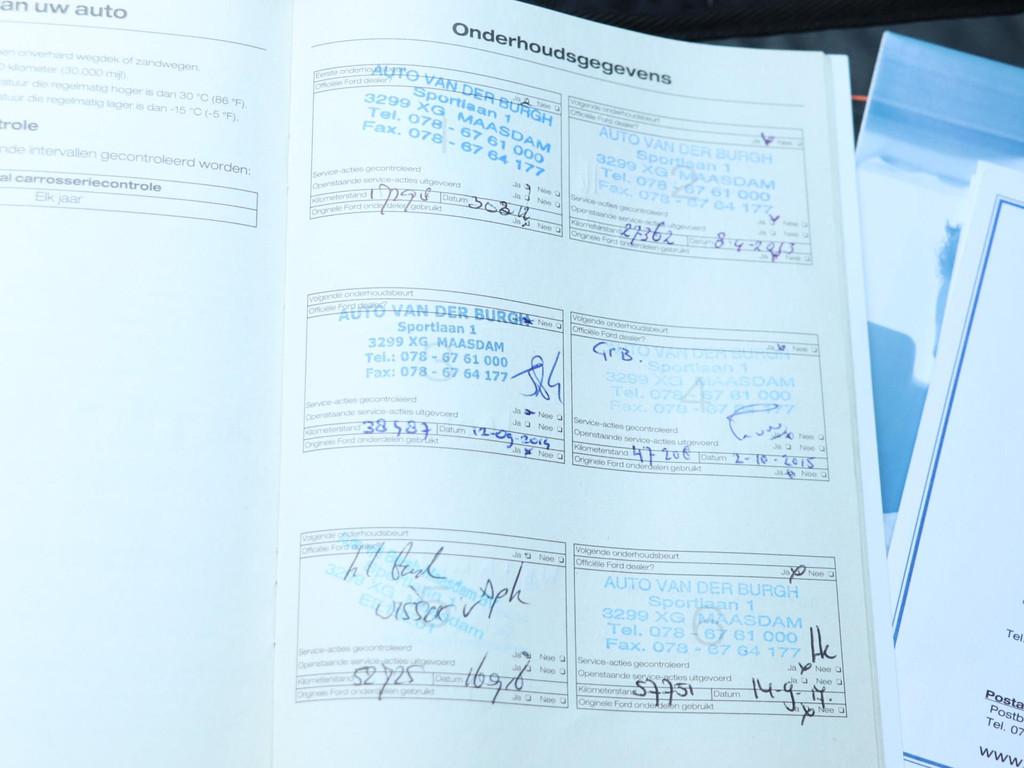 an uw auto
en onverhard wegdek of zandwegen.
0 kilometer (30.000 mijl).
atuur die regelmatig hoger is dan 30 °C (86 °F).
atuur die regelmatig lager is dan -15 °C (-5 °F).
trole
nde intervallen gecontroleerd worden:
al carrosseriecontrole
Elk jaar
Onderhoudsgegevens
Eerste onderhoudsbeurt
Officiële Ford dealer? Ja Nee
AUTO VAN DER BURGH
Sportlaan 1
3299 XG MAASDAM
Tel. 078 - 67 61 000
Fax. 078 - 67 64 177
Service-acties gecontroleerd Ja Nee
Openstaande service-acties uitgevoerd Ja Nee
Kilometerstand Datum
Originele Ford onderdelen gebruikt Ja Nee
Volgende onderhoudsbeurt
Officiële Ford dealer? Ja Nee
AUTO VAN DER BURGH
Sportlaan 1
3299 XG MAASDAM
Tel. 078 - 67 61 000
Fax. 078 - 67 64 177
Service-acties gecontroleerd Ja Nee
Openstaande service-acties uitgevoerd Ja Nee
Kilometerstand 27362 Datum 8-4-2013
Originele Ford onderdelen gebruikt Ja Nee
Volgende onderhoudsbeurt
Officiële Ford dealer? Ja Nee
AUTO VAN DER BURGH
Sportlaan 1
3299 XG MAASDAM
Tel.: 078 - 67 61 000
Fax: 078 - 67 64 177
Service-acties gecontroleerd Ja Nee
Openstaande service-acties uitgevoerd Ja Nee
Kilometerstand 38487 Datum 12-09-2014
Originele Ford onderdelen gebruikt Ja Nee
Volgende onderhoudsbeurt
Officiële Ford dealer? Ja Nee
GrB.
AUTO VAN DER BURGH
Sportlaan 1
3299 XG MAASDAM
Tel. 078 - 67 61 000
Fax. 078 - 67 64 177
Service-acties gecontroleerd Ja Nee
Openstaande service-acties uitgevoerd Ja Nee
Kilometerstand 47206 Datum 2-10-2015
Originele Ford onderdelen gebruikt Ja Nee
Volgende onderhoudsbeurt
Officiële Ford dealer? Ja Nee
Service-acties gecontroleerd Ja Nee
Openstaande service-acties uitgevoerd Ja Nee
Kilometerstand 52725 Datum
Originele Ford onderdelen gebruikt Ja Nee
Volgende onderhoudsbeurt
Officiële Ford dealer? Ja Nee
AUTO VAN DER BURGH
Sportlaan 1
3299 XG MAASDAM
Tel. 078 - 67 61 000
Fax. 078 - 67 64 177
Service-acties gecontroleerd Ja Nee
Openstaande service-acties uitgevoerd Ja Nee
Kilometerstand 57751 Datum 14-9-17.
Originele Ford onderdelen gebruikt Ja Nee
Tel.
Posta
Postb
Tel. 07
www.